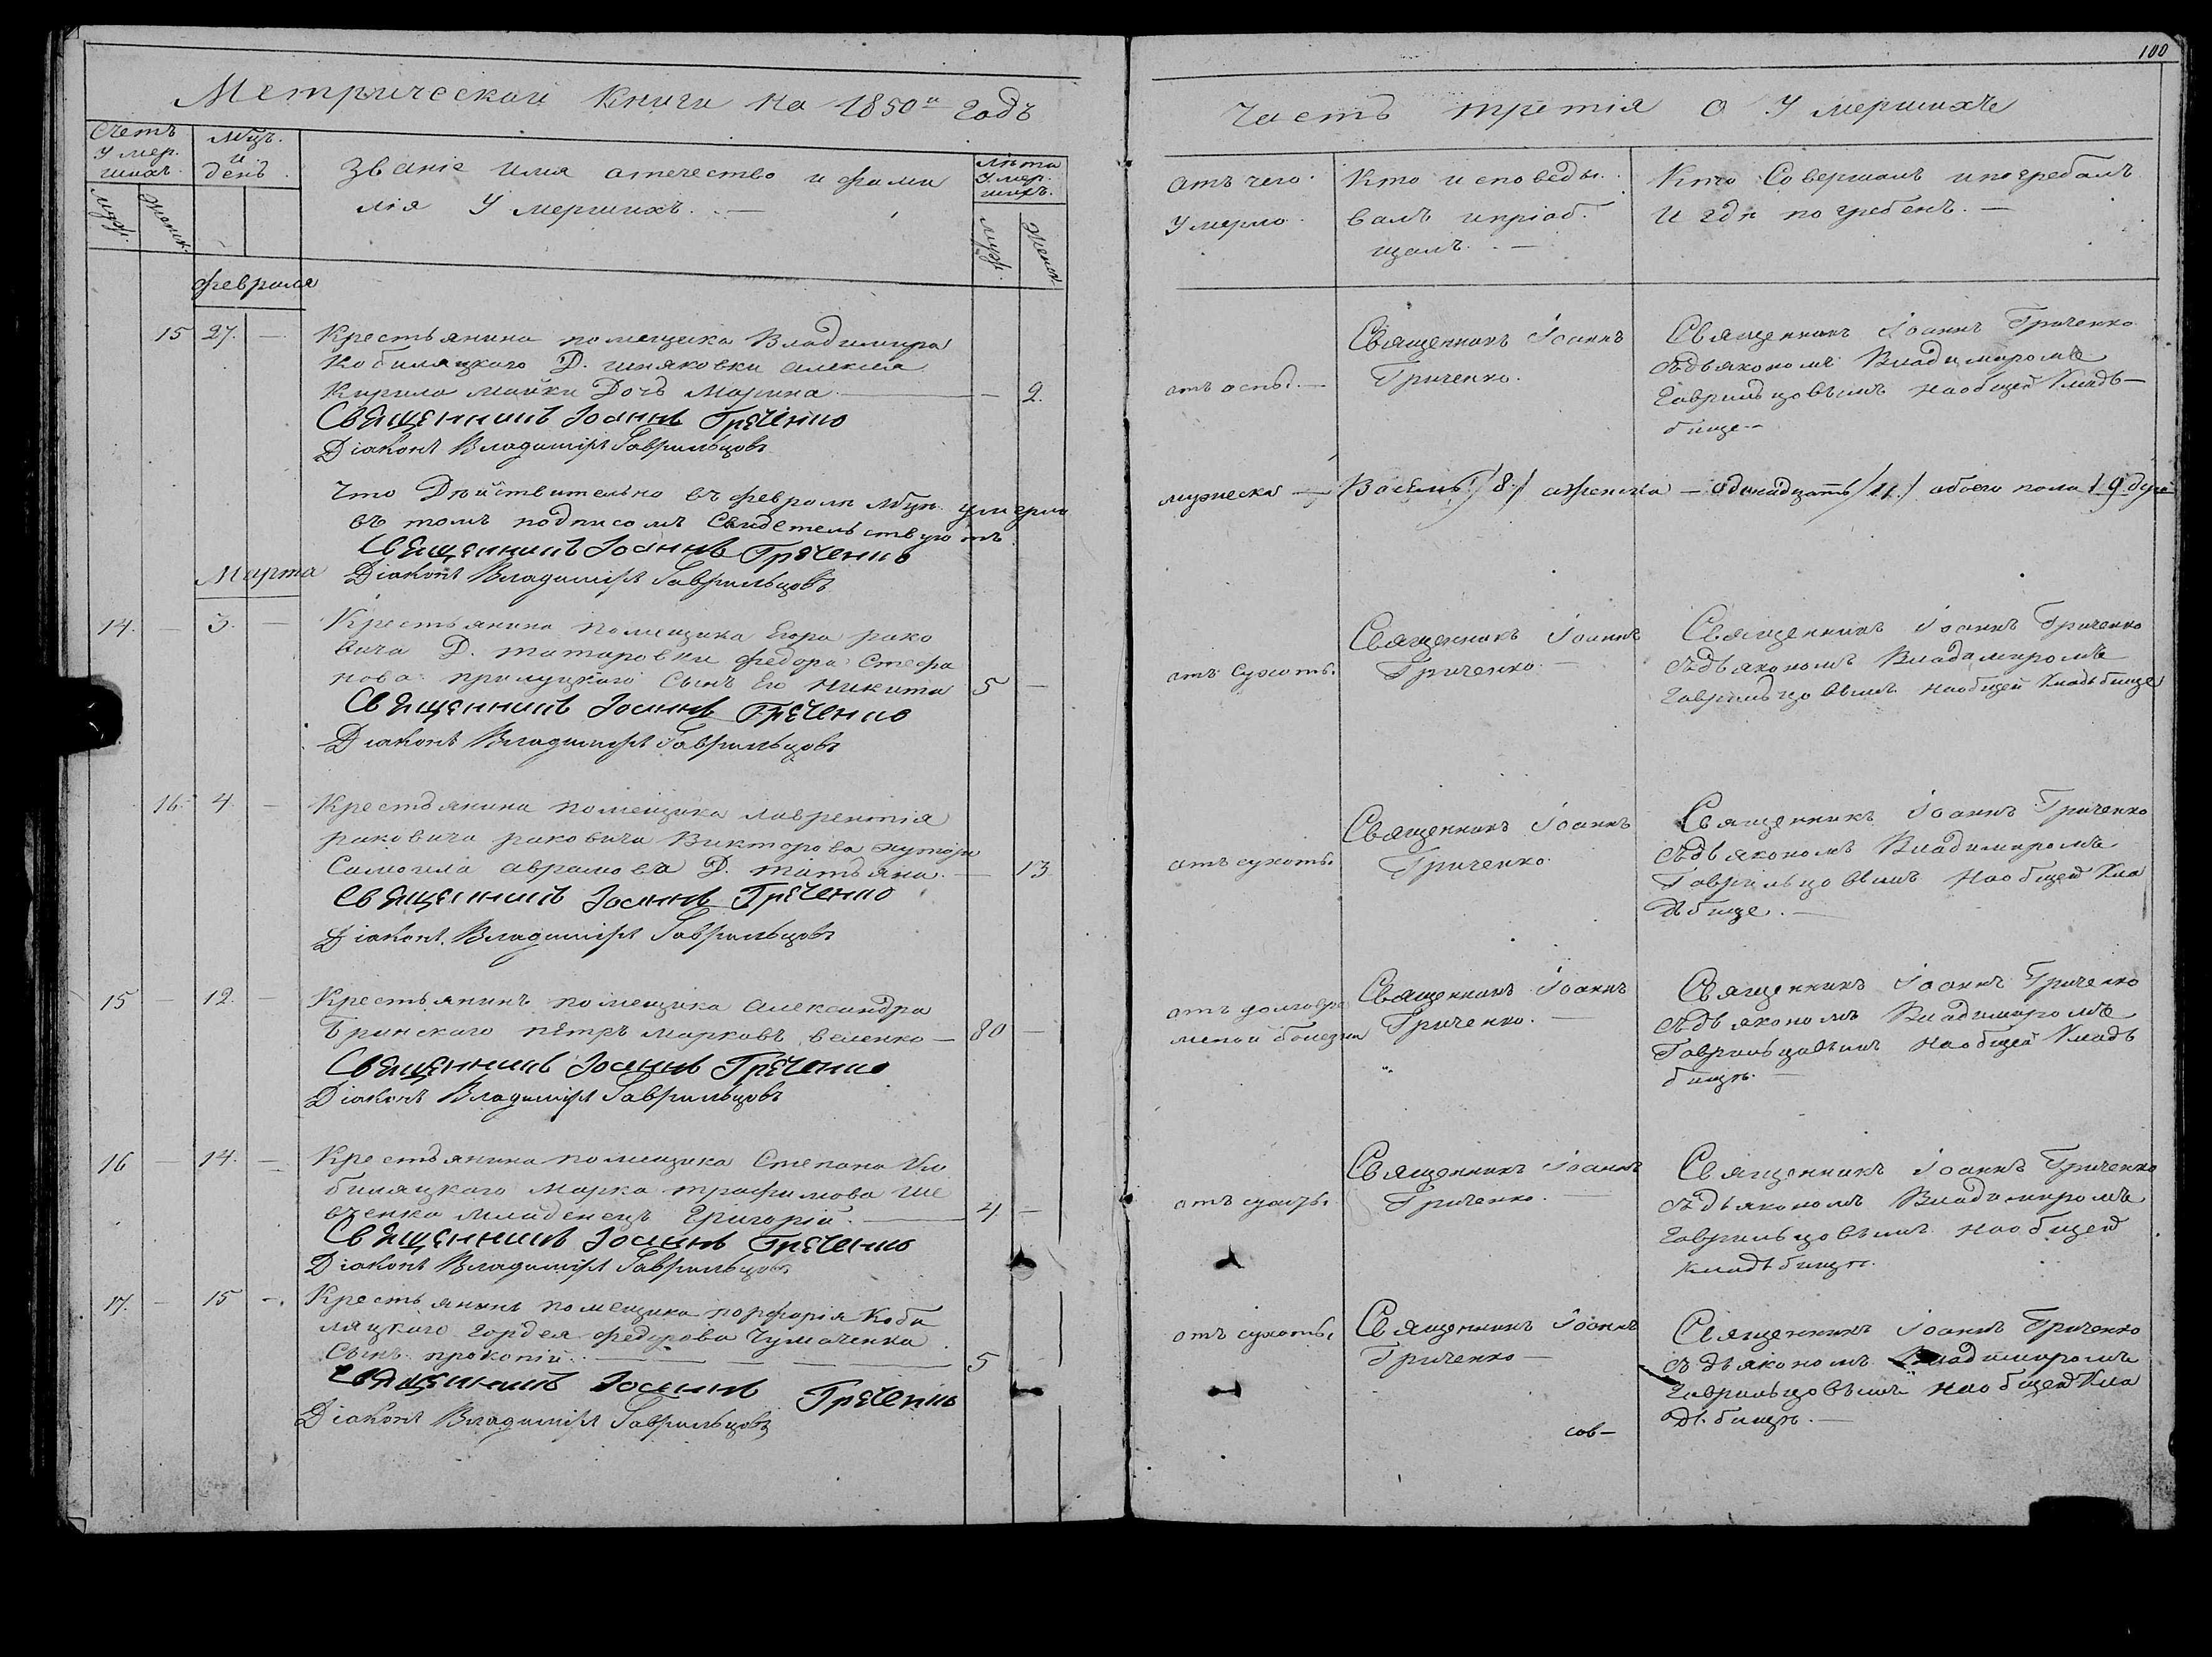 100
Метрической Книги на 1850й годъ
Счетъ умершихъ
Мцъ. и день
Званіе Имя отечество и фами
лія Умершихъ. —
лѣта Умершихъ.
муж.
женск.
муж.
женск.
Часть третія о Умершихъ
Отъ чего
Умерло
Кто исповеды.
валъ и пріоб.
щалъ. —
Кто Совершалъ и погребалъ
и гдѣ погребенъ. —
февраля
15 27. — Крестьянина помещика Владимира
Кобиляцкого Д. шняковки алексея
Кирила майки Дочь Марина — — 2.
Священникъ Іоаннъ Гриченко
Діаконъ Владиміръ Гаврильцовъ
отъ оспы. —
Священникъ Іоаннъ
Гриченко.
Священникъ Іоаннъ Гриченко
съдьякономъ Владимиромъ
Гаврильцовымъ наобщей Кладь—
бище —
Что Действительно въ феврале мцѣ умерло
въ томъ подписомъ Свидетельствуютъ
Священникъ Іоаннъ Гриченко
Діаконъ Владиміръ Гаврильцовъ
мужеска — Восемь /8./ аженска — одинадцать /11./ обоего пола 19 душ
Марта
14. — 3. — Крестьянина помещика Егора рако
вича Д. татаровки федора Стефа
нова прилуцкого Сынъ Его никита 5 —
Священникъ Іоаннъ Гриченко
Діаконъ Владиміръ Гаврильцовъ
отъ Сухоты.
Священникъ Іоаннъ
Гриченко. —
Священникъ Іоаннъ Гриченко
съдьякономъ Владимиромъ
Гаврильцовымъ наобщей Кладьбище
16. 4 — Крестьянина помещика лаврентія
раковича раковича Викторова хутора
Самоила аврамова Д. татьяна. — 13
Священникъ Іоаннъ Гриченко
Діаконъ Владиміръ Гаврильцовъ
отъ сухоты.
Священникъ Іоаннъ
Гриченко.
Священникъ Іоаннъ Гриченко
съдьякономъ Владимиромъ
Гаврильцовымъ наобщей Кла
дьбище. —
15 — 12. — Крестьянинъ помещика александра
Бринского петръ марковъ веленко — 80 —
Священникъ Іоаннъ Гриченко
Діаконъ Владиміръ Гаврильцовъ
отъ долговре
меной болезни
Священникъ Іоаннъ
Гриченко. —
Священникъ Іоаннъ Гриченко
съдьякономъ Владимиромъ
Гаврильцовымъ наобщей Кладь
бищѣ. —
16 — 14. — Крестьянина помещика Степана Ко
биляцкого марка трофимова ше
вченка младенецъ Григорій. — 4 —
Священникъ Іоаннъ Гриченко
Діаконъ Владиміръ Гаврильцовъ
отъ сухоты.
Священникъ Іоаннъ
Гриченко.
Священникъ Іоаннъ Гриченко
съдьякономъ Владимиромъ
Гаврильцовымъ наобщей
кладьбищѣ.
17. — 15 — Крестьянинъ помещика порфирія Коби
ляцкого Гордея федорова Чумаченка
Сынъ прокопій. — 5
Священникъ Іоаннъ Гриченко
Діаконъ Владиміръ Гаврильцовъ
отъ сухоты,
Священникъ Іоаннъ
Гриченко —
Священникъ Іоаннъ Гриченко
съдьякономъ Владимиромъ
Гаврильцовымъ наобщей Кла
дьбищѣ. —
сов—